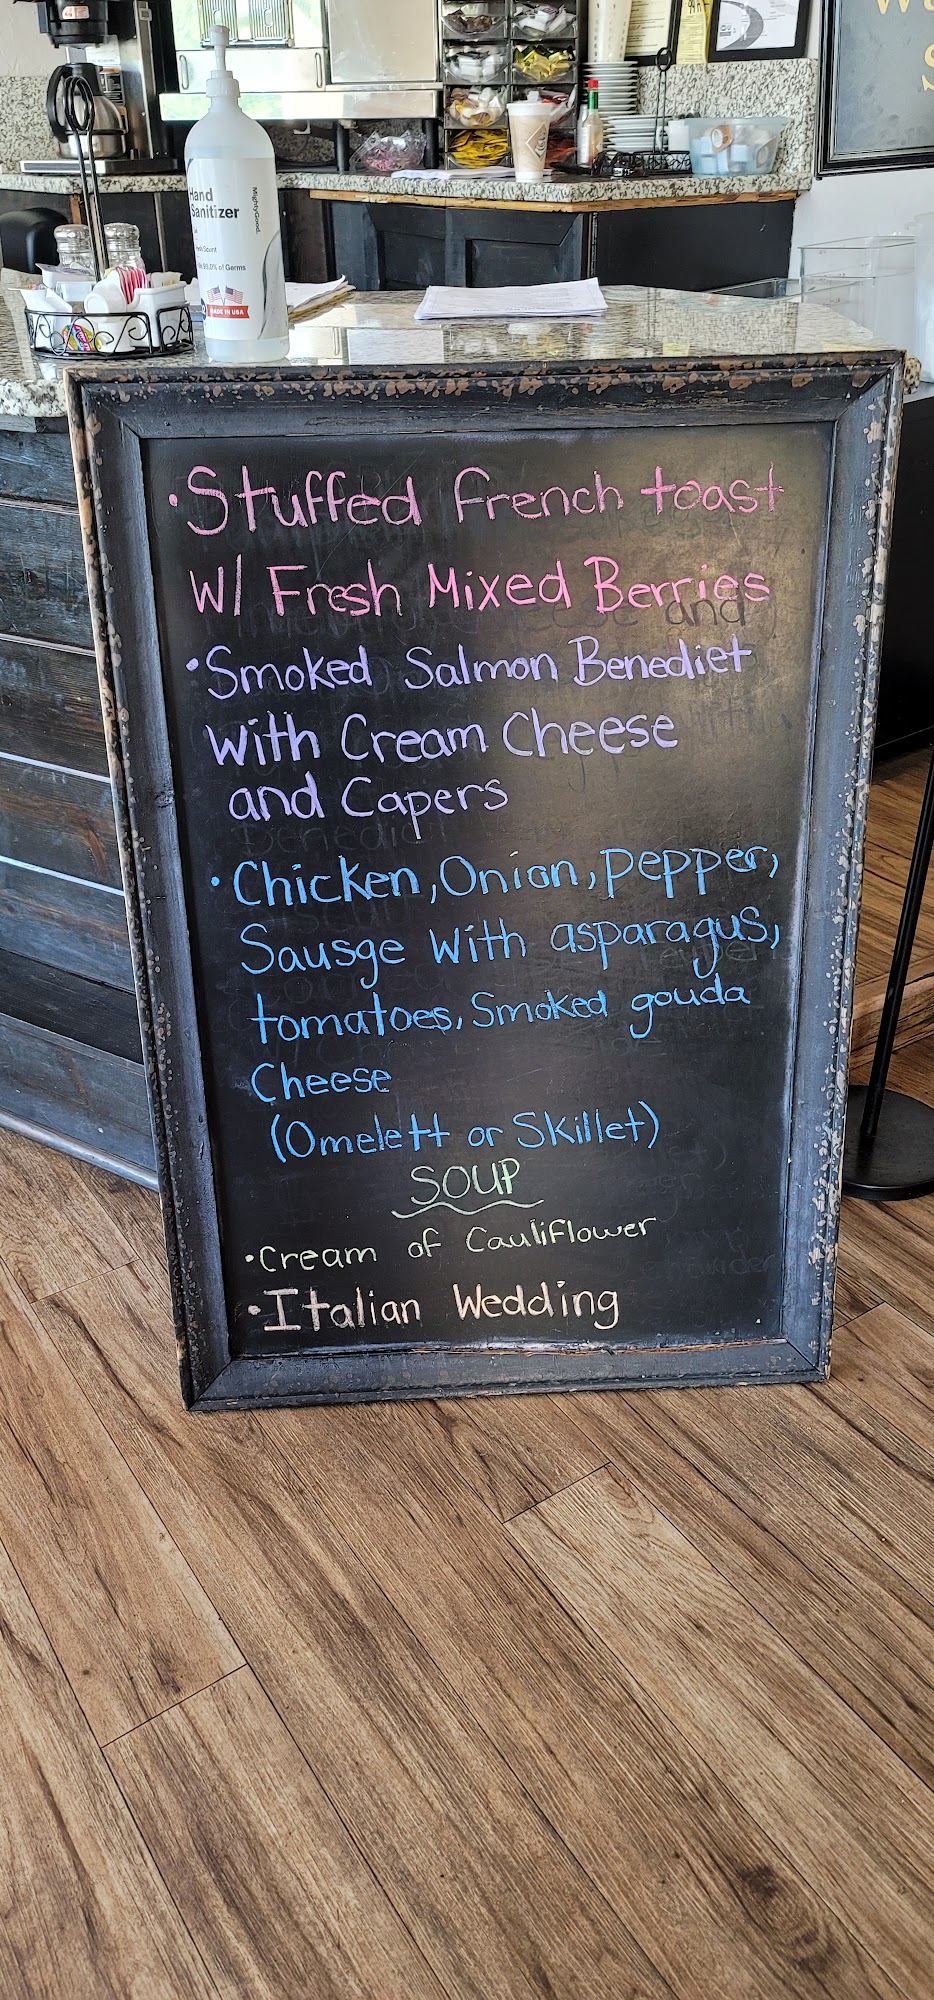 Hand
Sanitizer
MightyGood.
99.9% of Germs
MADE IN USA
• Stuffed French toast
W/ Fresh Mixed Berries
• Smoked Salmon Benediet
with Cream Cheese
and Capers
• Chicken, Onion, pepper,
Sausge with asparagus,
tomatoes, Smoked gouda
Cheese
(Omelett or Skillet)
SOUP
• Cream of Cauliflower
• Italian Wedding